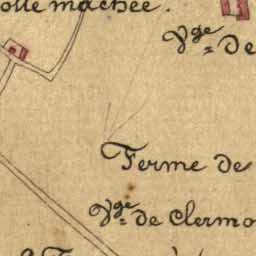 olle machée.
Vge de
Ferme de
Vge de Clermo